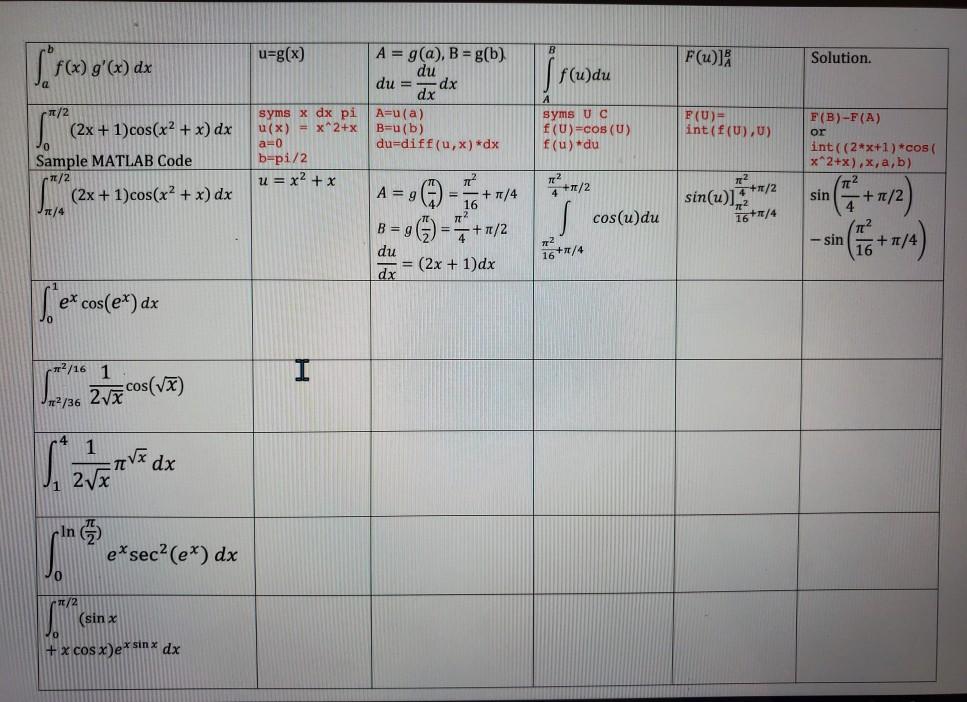 ∫_a^b f(x) g'(x) dx
u=g(x)
A = g(a), B = g(b).
du = du/dx dx
∫_A^B f(u)du
F(u)]_A^B
Solution.
∫_0^{π/2} (2x + 1)cos(x² + x) dx
Sample MATLAB Code
syms x dx pi
u(x) = x^2+x
a=0
b=pi/2
A=u(a)
B=u(b)
du=diff(u,x)*dx
syms U C
f(U)=cos(U)
f(u)*du
F(U)=
int(f(U),U)
F(B)-F(A)
or
int((2*x+1)*cos(
x^2+x),x,a,b)
∫_{π/4}^{π/2} (2x + 1)cos(x² + x) dx
u = x² + x
A = g(π/4) = π²/16 + π/4
B = g(π/2) = π²/4 + π/2
du/dx = (2x + 1)dx
∫_{π²/16+π/4}^{π²/4+π/2} cos(u)du
sin(u)]_{π²/16+π/4}^{π²/4+π/2}
sin(π²/4 + π/2)
− sin(π²/16 + π/4)
∫_0^1 e^x cos(e^x) dx
∫_{π²/36}^{π²/16} 1/(2√x) cos(√x)
∫_1^4 1/(2√x) π^{√x} dx
∫_0^{ln(π/2)} e^x sec²(e^x) dx
∫_0^{π/2} (sin x
+ x cos x)e^{x sin x} dx